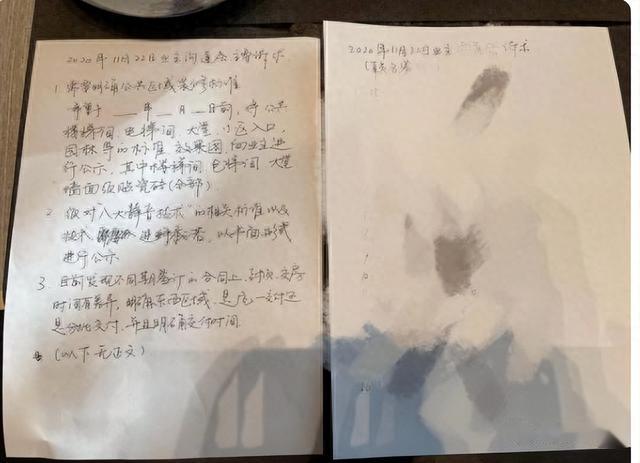 2020年11月22日业主沟通会主要诉求
1 需要明确公共区域装修标准
并要于___年__月__日前,将公共
楼梯间,电梯间,大堂,小区入口,
园林等的标准,效果图,向业主进
行公示,其中楼梯间,电梯间,大堂
墙面须贴瓷砖(全部)
2 针对"八大静音技术"的相关标准以及
技术 进 ,以书面形式
进行公示
3 目前发现不同期签订的合同上,交房
时间有差异,明确东西区域,是统一交付还
是分批交付,并且明确交付时间
(以下无正文)
2020年11月22日业主沟通会诉求